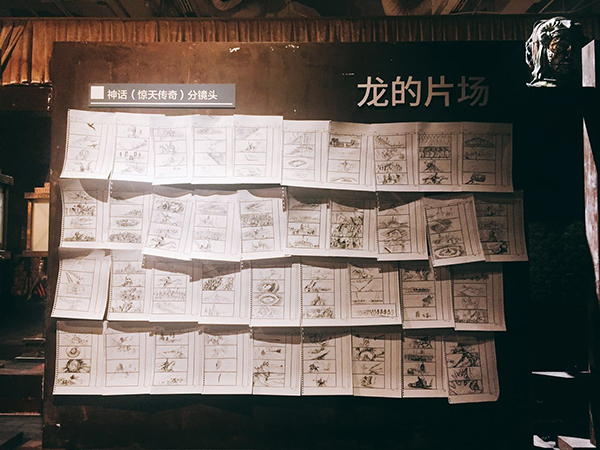 龙的片场
神话（惊天传奇）分镜头